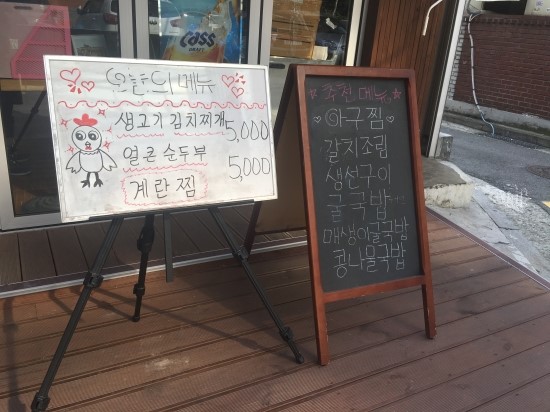 오늘의 메뉴
생고기 김치찌개 5,000
얼큰 순두부 5,000
계란찜
추천 메뉴
아구찜
갈치조림
생선구이
굴국밥
매생이굴국밥
콩나물국밥
Cass